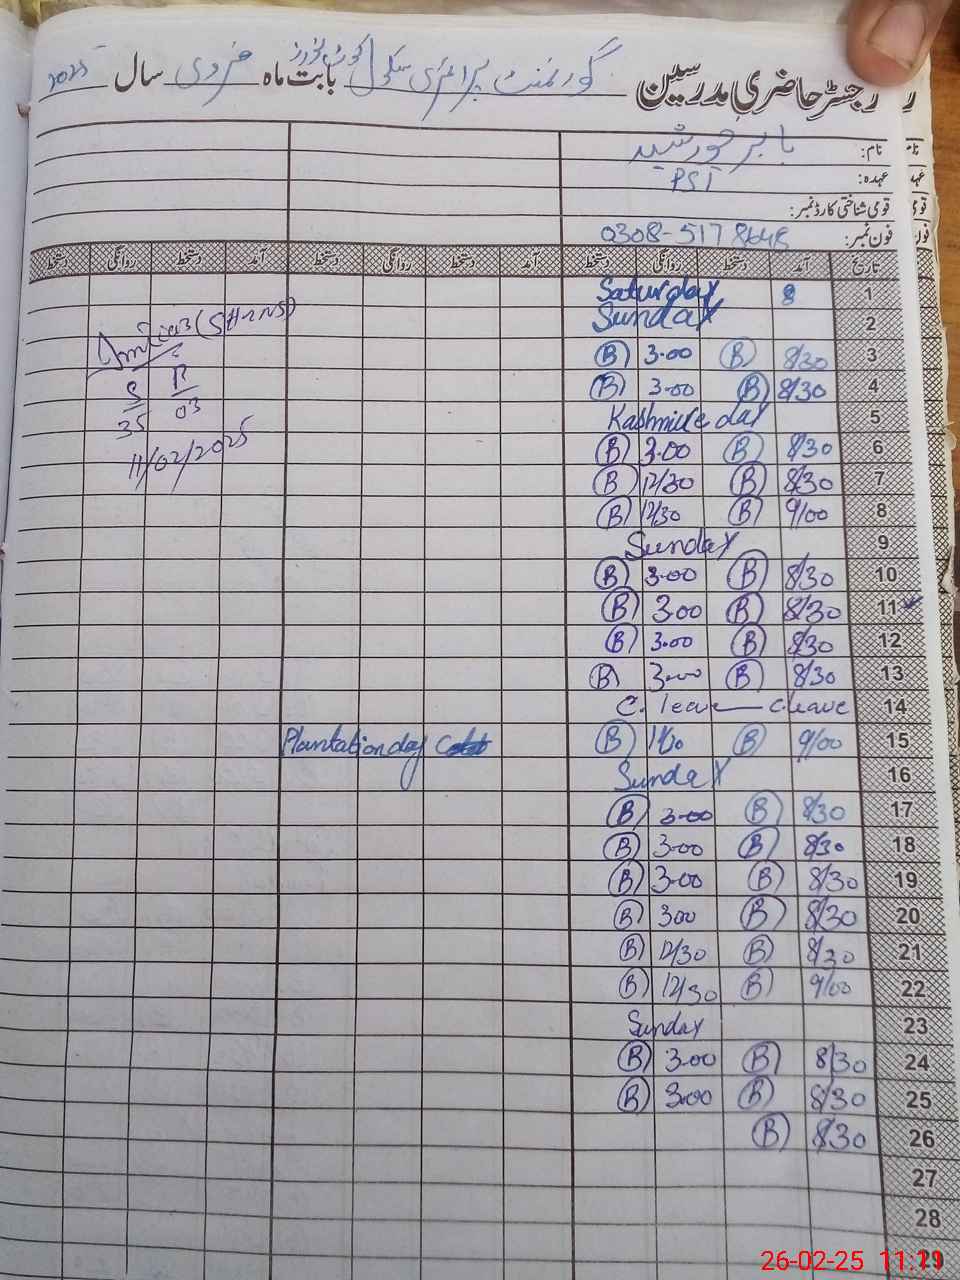 رجسٹر حاضری مدرسین گورنمنٹ پرائمری سکول بابت ماہ فروری سال 2025
نام: بابر خورشید
عہدہ: PST
قومی شناختی کارڈ نمبر:
فون نمبر: 0308-5178648
تاریخ آمد دستخط روانگی دستخط آمد دستخط روانگی دستخط آمد دستخط روانگی دستخط
1 8 Saturday
2 Sunday
3 8/30 B 3.00 B
4 8/30 B 3.00 B
5 Kashmire day
6 8/30 B 3.00 B
7 8/30 B 12/30 B
8 9/00 B 12/30 B
9 Sunday
10 8/30 B 3.00 B
11 8/30 B 3.00 B
12 8/30 B 3.00 B
13 8/30 B 3.00 B
14 C. leave — c leave
15 9/00 B B Plantation day
16 Sunday
17 8/30 B 3.00 B
18 8/30 B 3.00 B
19 8/30 B 3.00 B
20 8/30 B 300 B
21 8/30 B 12/30 B
22 9/00 B 12/30 B
23 Sunday
24 8/30 B 3.00 B
25 8/30 B 3.00 B
26 8/30 B
27
28
29
S R
35 03
11/02/2025
26-02-25 11:11